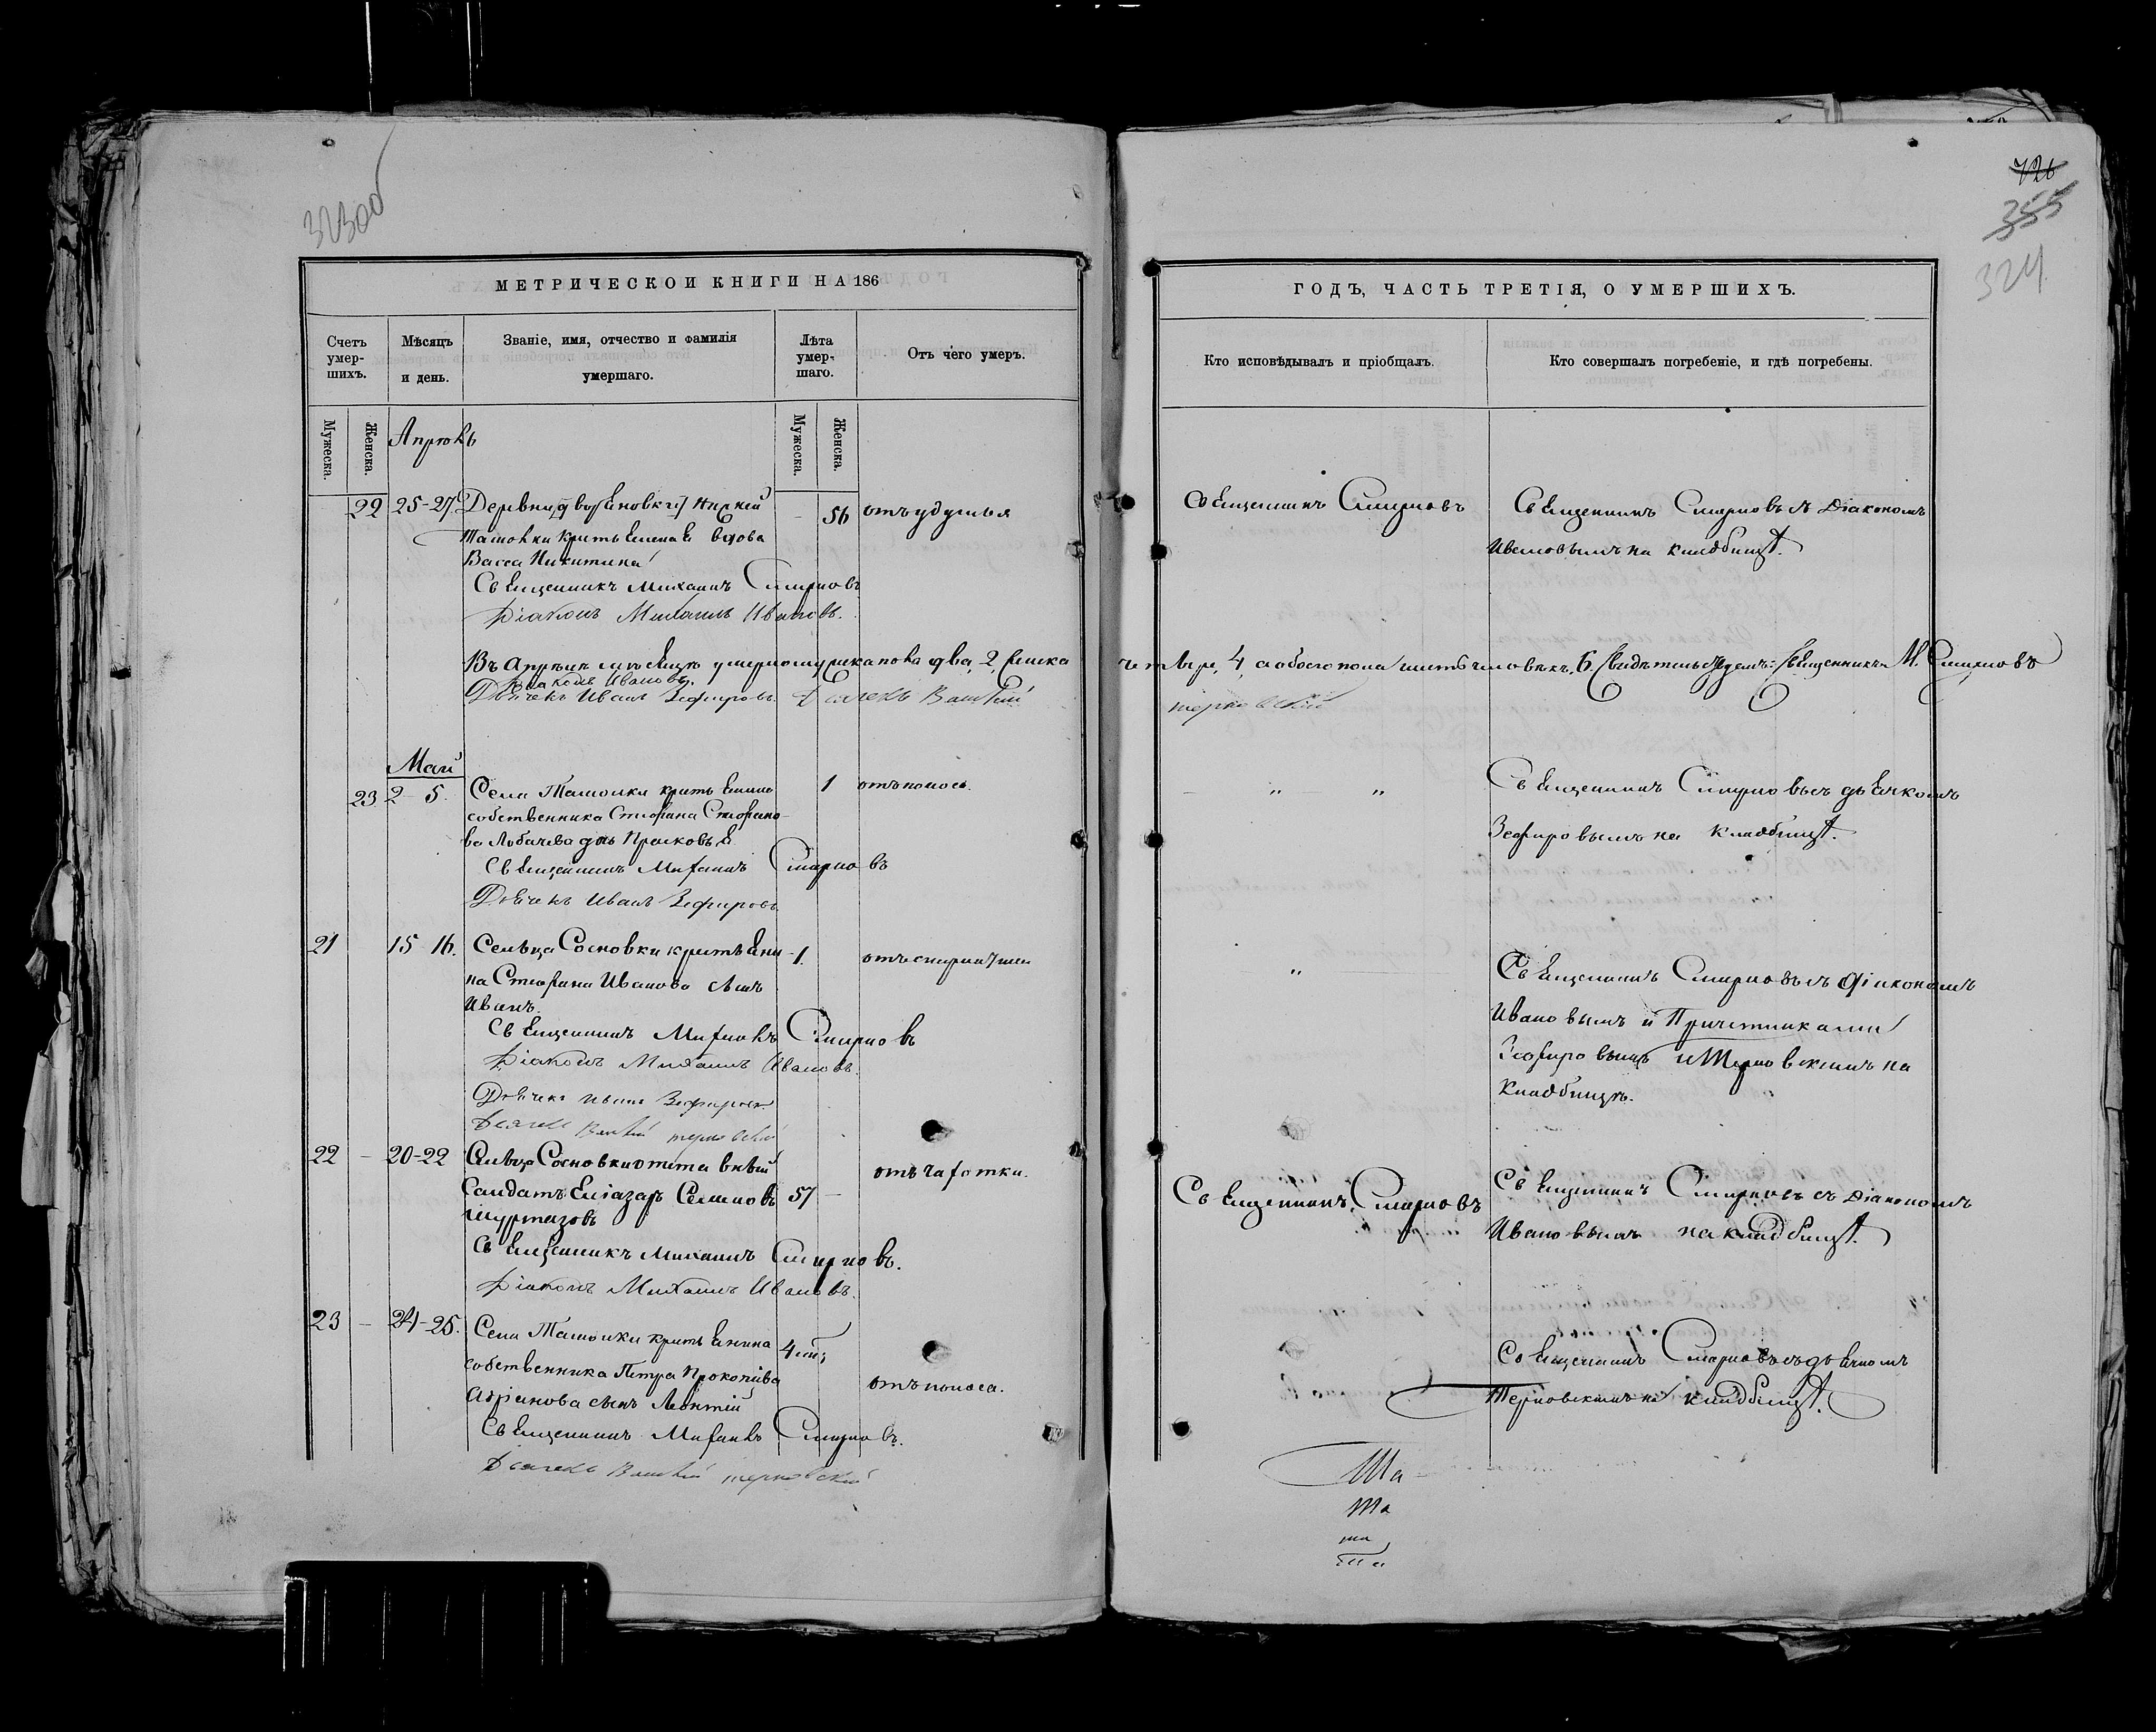 32300
726
355
324
МЕТРИЧЕСКОЙ КНИГИ НА 186
ГОДЪ, ЧАСТЬ ТРЕТІЯ, О УМЕРШИХЪ.
Счетъ умерших. Мѣсяцъ и день. Званіе, имя, отчество и фамилія умершаго. Лѣта умершаго. Отъ чего умеръ.
Кто исповѣдывалъ и пріобщалъ. Кто совершалъ погребеніе, и гдѣ погребены.
Мужеска. Женска. Мужеска. Женска.
Апрѣль
22 25-27. Деревни
56 отъ удушья
Ташовки вдова
Васса Никитина
Священникъ Михаилъ Смирновъ
Діаконъ Михаилъ Ивановъ.
Священникъ Смирновъ
Священникъ Смирновъ съ Діакономъ
Ивановымъ на кладбищѣ.
Въ Апрѣлѣ мѣсяцѣ умерло мужеска пола два, 2, женска
четыре, 4, а обоего пола шесть человѣкъ, 6. Священникъ М. Смирновъ
Діаконъ Ивановъ.
Дьячекъ Иванъ Зефировъ. Дьячекъ
терновскій
Май
23 2 5. Села Ташолки крестьянина
1 отъ поноса.
собственника Стефана Стефано-
ва Лобачева дочь Прасковья
Священникъ Михаилъ Смирновъ
Дьячекъ Иванъ Зефировъ
Священникъ Смирновъ съ дьячкомъ
Зефировымъ на кладбищѣ.
21 15 16. Сельца Сосновки крестьяни-
1.
на Стефана Иванова сынъ
Иванъ.
Священникъ Михаилъ Смирновъ
Діаконъ Михаилъ Ивановъ.
Дьячекъ Иванъ Зефировъ
Дьячекъ терновскій
Священникъ Смирновъ съ діакономъ
Ивановымъ и Причетниками
Зефировымъ и Терновскимъ на
Кладбищѣ.
22 20-22 Сельца Сосновки отставный
57 отъ чахотки.
Солдатъ Елеазаръ Семеновъ
Муртазовъ
Священникъ Михаилъ Смирновъ.
Діаконъ Михаилъ Ивановъ.
Священникъ Смирновъ
Священникъ Смирновъ съ Діакономъ
Ивановымъ на кладбищѣ.
23 24-25. Села Ташолки крестьянина
4
собственника Петра Прокопіева
отъ поноса.
Адріанова сынъ Леонтій
Священникъ Михаилъ Смирновъ.
Дьячекъ терновскій
Священникъ Смирновъ съ дьячкомъ
Терновскимъ на кладбищѣ.
Та
та
та